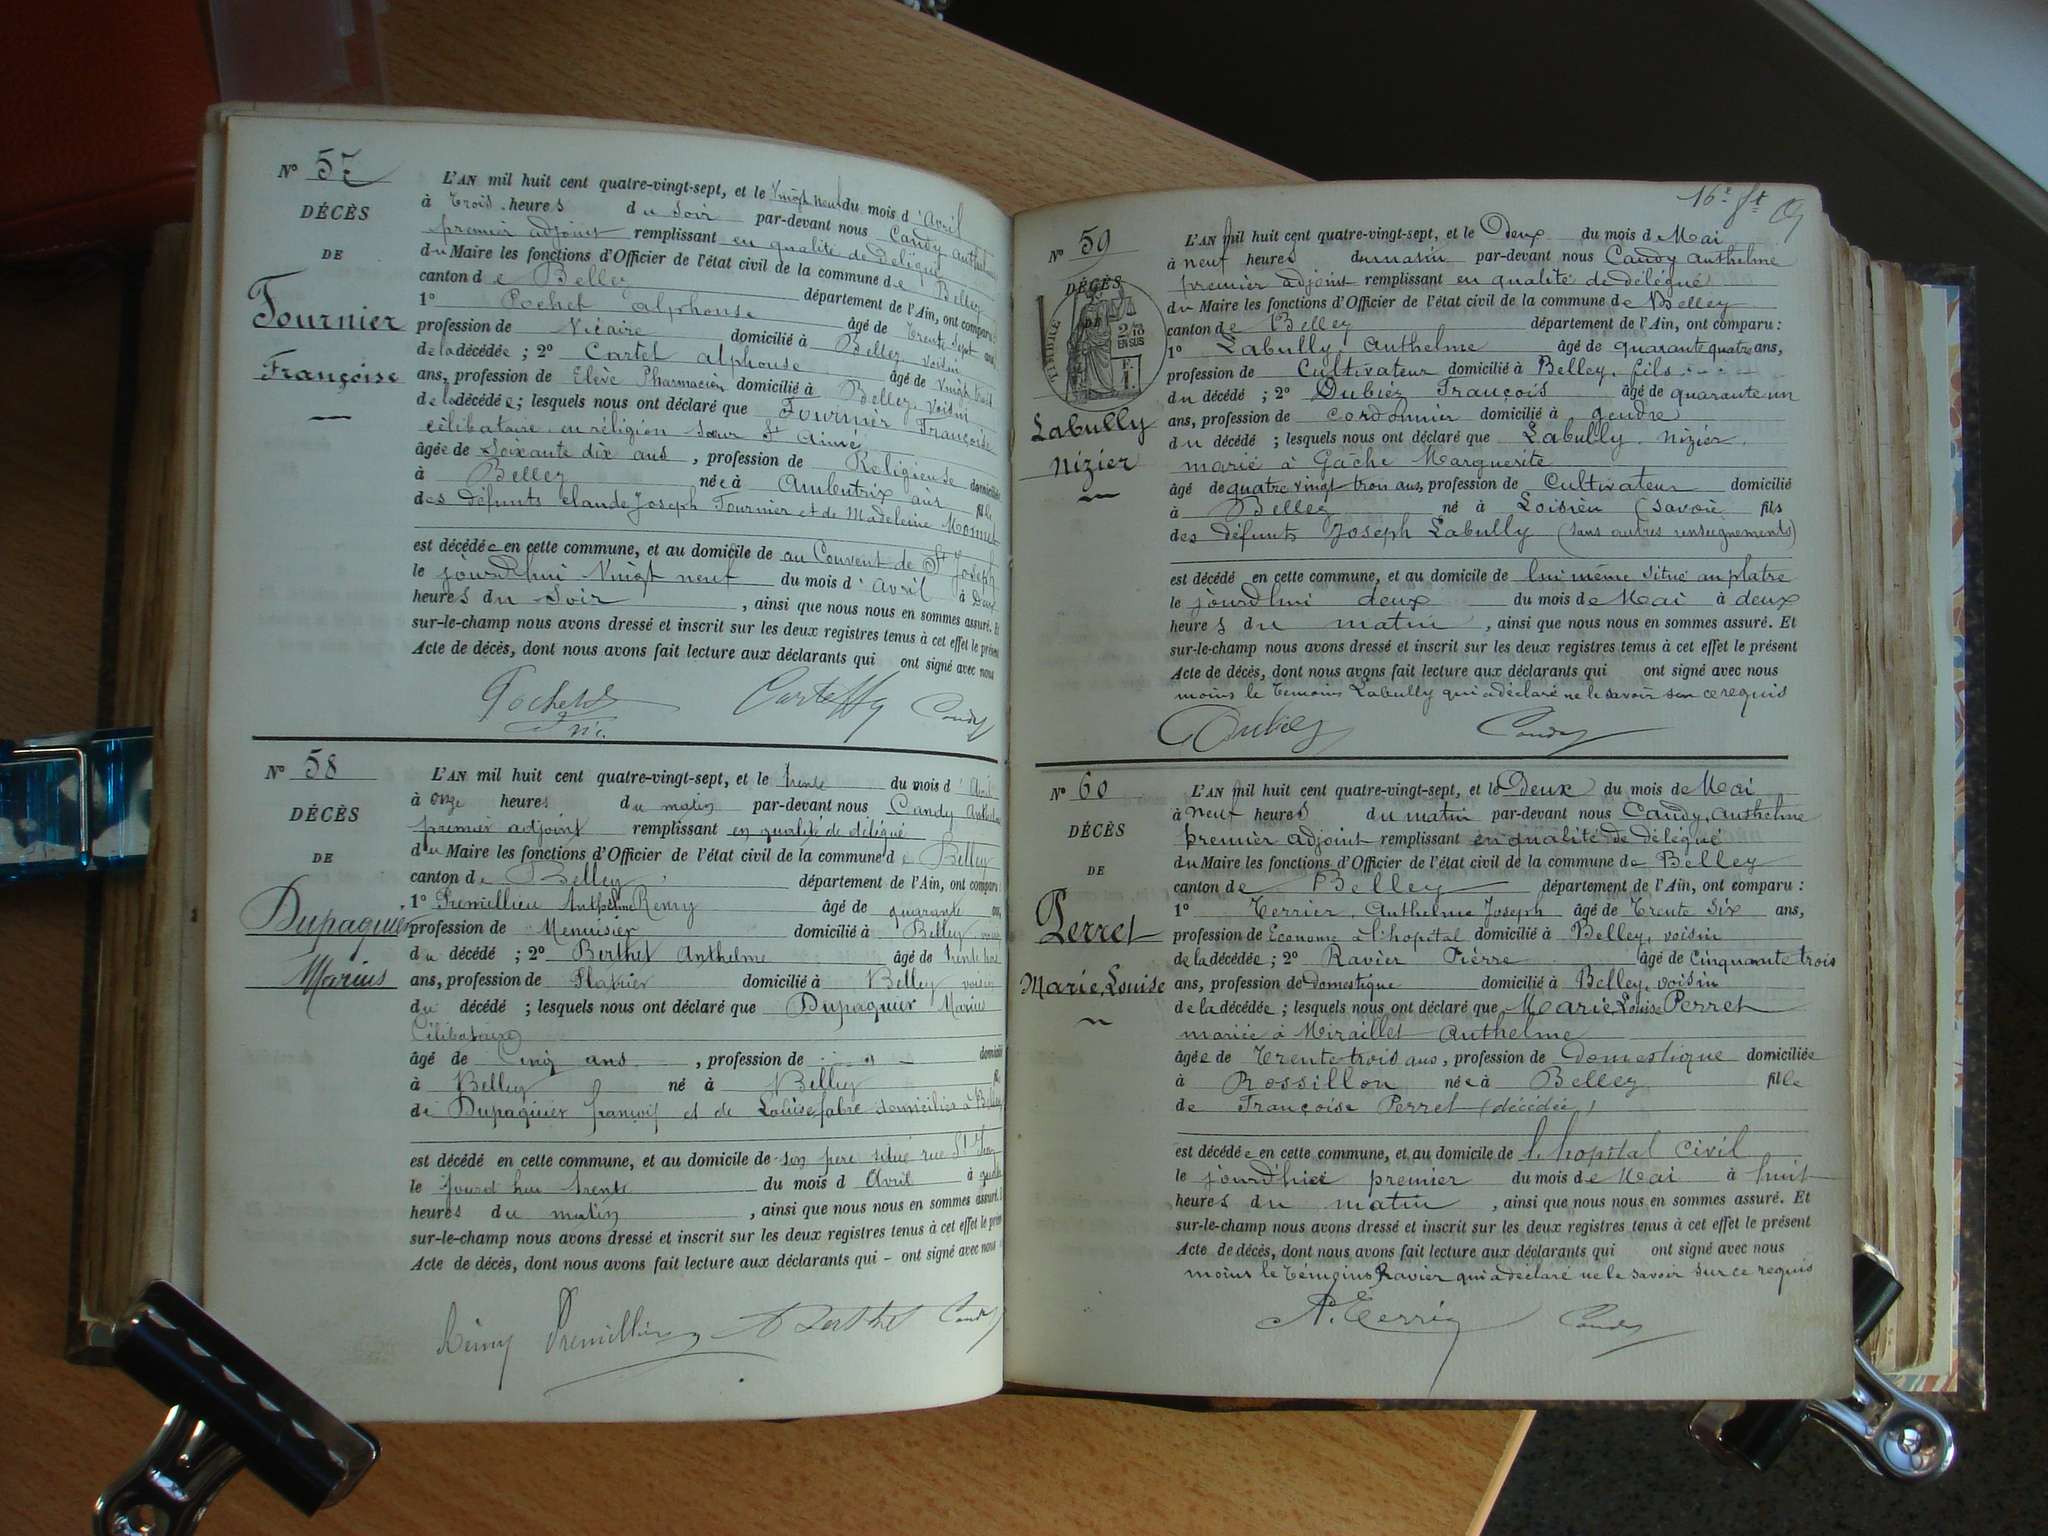 Nº 57
DÉCÈS
DE
Fournier
Françoise
L'AN mil huit cent quatre-vingt-sept, et le Vingt neuf du mois d'Avril
à Trois heures du Soir par-devant nous Candy Anthelme
premier adjoint remplissant en qualité de délégué
du Maire les fonctions d'Officier de l'état civil de la commune de Belley
canton de Belley département de l'Ain, ont comparu:
1º Pochet alphonse âgé de Trente Sept ans,
profession de Vicaire domicilié à Belley voisin
de la décédée ; 2º Cartet alphonse âgé de Vingt huit
ans, profession de Elève Pharmacien domicilié à Belley, Voisin
de la décédée ; lesquels nous ont déclaré que Fournier Françoise
célibataire en réligion Sœur St Aimé
âgée de Soixante dix ans, profession de Religieuse domiciliée
à Belley née à Ambutrix ain fille
des défunts Claude Joseph Fournier et de Madeleine Monnet
est décédée en cette commune, et au domicile de au Couvent de St Joseph
le jourd'hui Vingt neuf du mois d'avril à Deux
heures du Soir, ainsi que nous nous en sommes assuré. Et
sur-le-champ nous avons dressé et inscrit sur les deux registres tenus à cet effet le présent
Acte de décès, dont nous avons fait lecture aux déclarants qui ont signé avec nous
Pochet
vic.
Candy
Nº 58
DÉCÈS
DE
Dupaquier
Marius
L'AN mil huit cent quatre-vingt-sept, et le trente du mois d'Avril
à onze heures du matin par-devant nous Candy Anthelme
premier adjoint remplissant en qualité de délégué
du Maire les fonctions d'Officier de l'état civil de la commune de Belley
canton de Belley département de l'Ain, ont comparu:
1º Premillieu Anthelme Remy âgé de quarante ans,
profession de Menuisier domicilié à Belley voisin
du décédé ; 2º Berthet Anthelme âgé de trente
ans, profession de Platrier domicilié à Belley voisin
du décédé ; lesquels nous ont déclaré que Dupaquier Marius
Célibataire
âgé de Cinq ans, profession de domicilié
à Belley né à Belley fils
de Dupaquier françois et de Louise fabre domiciliés à Belley
est décédé en cette commune, et au domicile de son pere situé rue St Jean
le jourd'hui trente du mois d Avril à quatre
heures du matin, ainsi que nous nous en sommes assuré. Et
sur-le-champ nous avons dressé et inscrit sur les deux registres tenus à cet effet le présent
Acte de décès, dont nous avons fait lecture aux déclarants qui - ont signé avec nous
Rémy Premillieu A Berthet Candy
16e ft
Nº 59
DÉCÈS
DE
TIMBRE
2/10
EN SUS
Labully
Nizier
L'AN mil huit cent quatre-vingt-sept, et le Deux du mois de Mai
à neuf heures du matin par-devant nous Candy Anthelme
premier adjoint remplissant en qualité de délégué
du Maire les fonctions d'Officier de l'état civil de la commune de Belley
canton de Belley département de l'Ain, ont comparu :
1º Labully, Anthelme âgé de quarante quatre ans,
profession de Cultivateur domicilié à Belley, fils
du décédé ; 2º Dubiez François âgé de quarante un
ans, profession de cordonnier domicilié à gendre
du décédé ; lesquels nous ont déclaré que Labully. Nizier.
marié à Gâche Marguerite
âgé de quatre vingt trois ans, profession de Cultivateur domicilié
à Belley né à Loisieu (Savoie fils
des défunts Joseph Labully (sans autres renseignements)
est décédé en cette commune, et au domicile de lui même situé au platre
le jourd'hui deux du mois de Mai à deux
heures du matin, ainsi que nous nous en sommes assuré. Et
sur-le-champ nous avons dressé et inscrit sur les deux registres tenus à cet effet le présent
Acte de décès, dont nous avons fait lecture aux déclarants qui ont signé avec nous
moins le temoins Labully qui a déclaré ne le savoir sur ce requis
Dubiez Candy
Nº 60
DÉCÈS
DE
Perret
Marie, Louise
L'AN mil huit cent quatre-vingt-sept, et le Deux du mois de Mai
à Neuf heures du matin par-devant nous Candy, Anthelme
premier adjoint remplissant en qualité de délégué
du Maire les fonctions d'Officier de l'état civil de la commune de Belley
canton de Belley département de l'Ain, ont comparu :
1º Terrier, Anthelme Joseph âgé de Trente Six ans,
profession de Econome à l'hopital domicilié à Belley, voisin
de la décédée ; 2º Ravier Pierre âgé de Cinquante trois
ans, profession de domestique domicilié à Belley, voisin
de la décédée ; lesquels nous ont déclaré que Marie, Louise Perret
mariée à Miraillet Anthelme
âgée de Trente trois ans, profession de Domestique domiciliée
à Rossillon née à Belley fille
de Françoise Perret (décédée)
est décédée en cette commune, et au domicile de l'hopital civil
le jourd'hui premier du mois de Mai à huit
heures du matin, ainsi que nous nous en sommes assuré. Et
sur-le-champ nous avons dressé et inscrit sur les deux registres tenus à cet effet le présent
Acte de décès, dont nous avons fait lecture aux déclarants qui ont signé avec nous
moins le témoins Ravier qui a déclaré ne le savoir sur ce requis
A. Terrier Candy